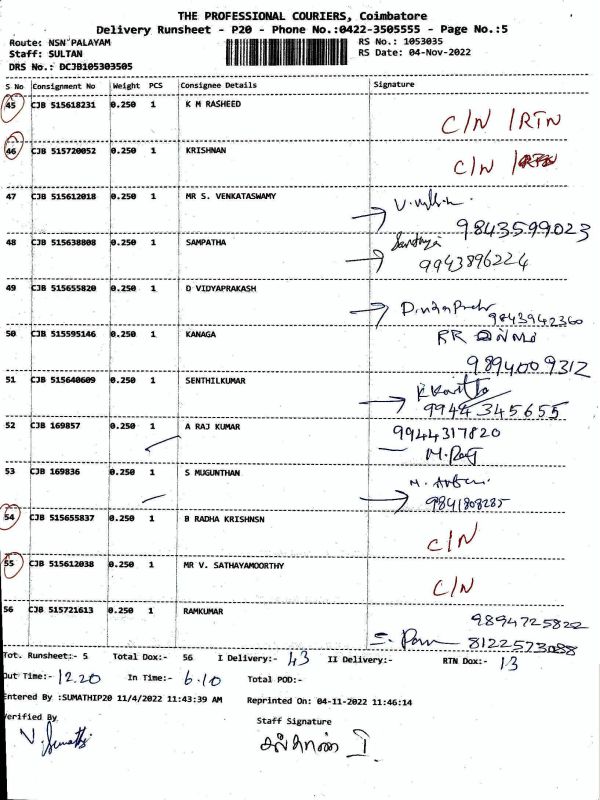 THE PROFESSIONAL COURIERS, Coimbatore
Delivery Runsheet - P20 - Phone No.:0422-3505555 - Page No.:5
Route: NSN PALAYAM RS No.: 1053035
Staff: SULTAN RS Date: 04-Nov-2022
DRS No.: DCJB105303505
S No Consignment No Weight PCS Consignee Details Signature
45 CJB 515618231 0.250 1 K M RASHEED C/N /RTN
46 CJB 515720052 0.250 1 KRISHNAN C/N
47 CJB 515612018 0.250 1 MR S. VENKATASWAMY
9843599023
48 CJB 515638808 0.250 1 SAMPATHA
9943896224
49 CJB 515655820 0.250 1 D VIDYAPRAKASH
9843942360
50 CJB 515595146 0.250 1 KANAGA RR
9894009312
51 CJB 515640609 0.250 1 SENTHILKUMAR
99441345655
52 CJB 169857 0.250 1 A RAJ KUMAR 9944317820
M. Raj
53 CJB 169836 0.250 1 S MUGUNTHAN
9841808285
54 CJB 515655837 0.250 1 B RADHA KRISHNSN C/N
55 CJB 515612038 0.250 1 MR V. SATHAYAMOORTHY C/N
56 CJB 515721613 0.250 1 RAMKUMAR 9894725822
8122573088
Tot. Runsheet:- 5 Total Dox:- 56 I Delivery:- 43 II Delivery:- RTN Dox:- 13
Out Time:- 12.20 In Time:- 6.10 Total POD:-
Entered By :SUMATHIP20 11/4/2022 11:43:39 AM Reprinted On: 04-11-2022 11:46:14
Verified By Staff Signature
V. Sumathi